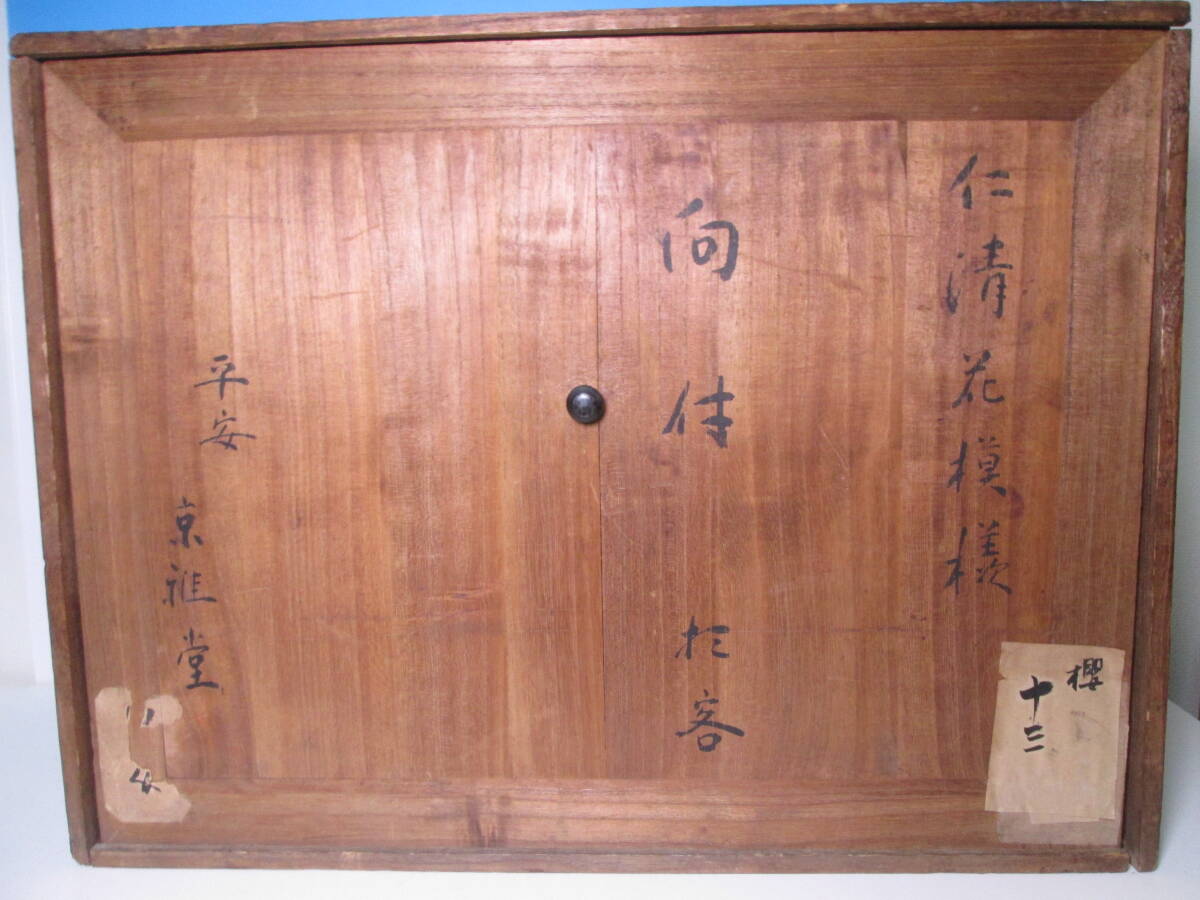 仁清花模様
向付 拾客
平安
京雅堂
櫻
十三